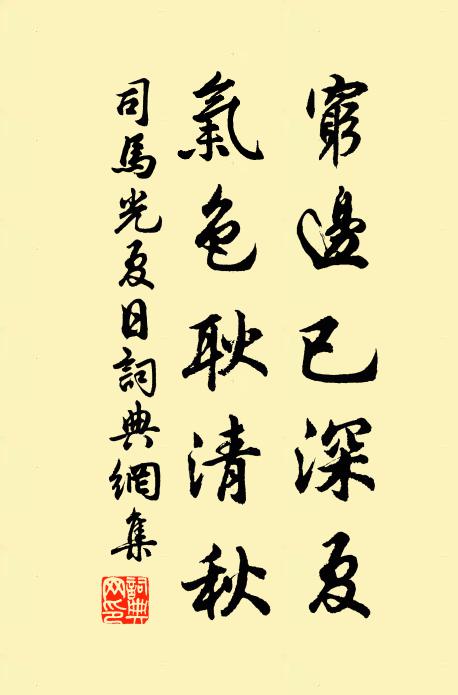 窮邊已深夏
氣色耿清秋
司馬光夏日詞典網集
詞典網印